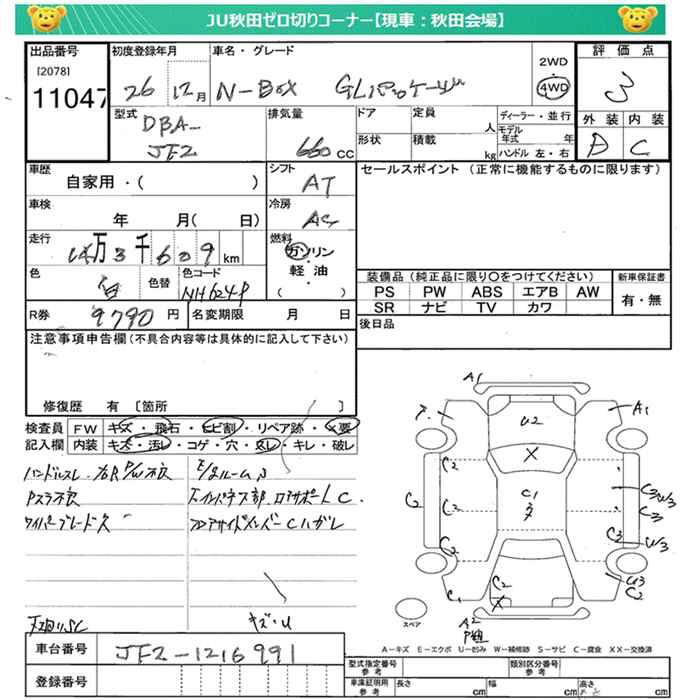 JU秋田ゼロ切りコーナー【現車：秋田会場】
出品番号
[2078]
11047
初度登録年月
26 12月
車名・グレード
N-Box GLパッケージ
2WD
4WD
評価点
3
外装 内装
D C
型式
DBA-
JF2
排気量
660 cc
ドア
定員
人
形状
積載
kg
ディーラー・並行
モデル年式 年
ハンドル 左・右
車歴
自家用・( )
シフト
AT
セールスポイント (正常に機能するものに限ります)
車検
年 月( 日)
冷房
AC
走行
万3千609km
燃料
ガソリン
・
軽油
・
( )
色
白
色替
色コード
NH624P
装備品 (純正品に限り○をつけてください)
PS PW ABS エアB AW
SR ナビ TV カワ
新車保証書
有・無
R券
9790円
名変期限 月 日
後日品
注意事項申告欄(不具合内容等は具体的に記入して下さい)
修復歴 有 〔箇所 〕
検査員
記入欄
FW キズ・飛石・ヒビ割・リペア跡・×要
内装 キズ・汚レ・コゲ・穴・スレ・キレ・破レ
ハンドルスレ 右R P/W不良
Pスラ不良
ワイパーブレード欠
E/gルーム
ロアサポートC
フロアサイドメンバーCハガレ
キズ・U
A1
A1
U2
X
C2
C1
C2
C2
C3
C3
C2
U3
C2
C2
X
C1
A2
スペア
A－キズ E－エクボ U－凹み W－補修跡 S－サビ C－腐食 XX－交換済
車台番号
JF2-1216991
登録番号
型式指定番号
参考
類別区分番号
参考
車庫証明用
参考
長さ cm
幅 cm
高さ cm